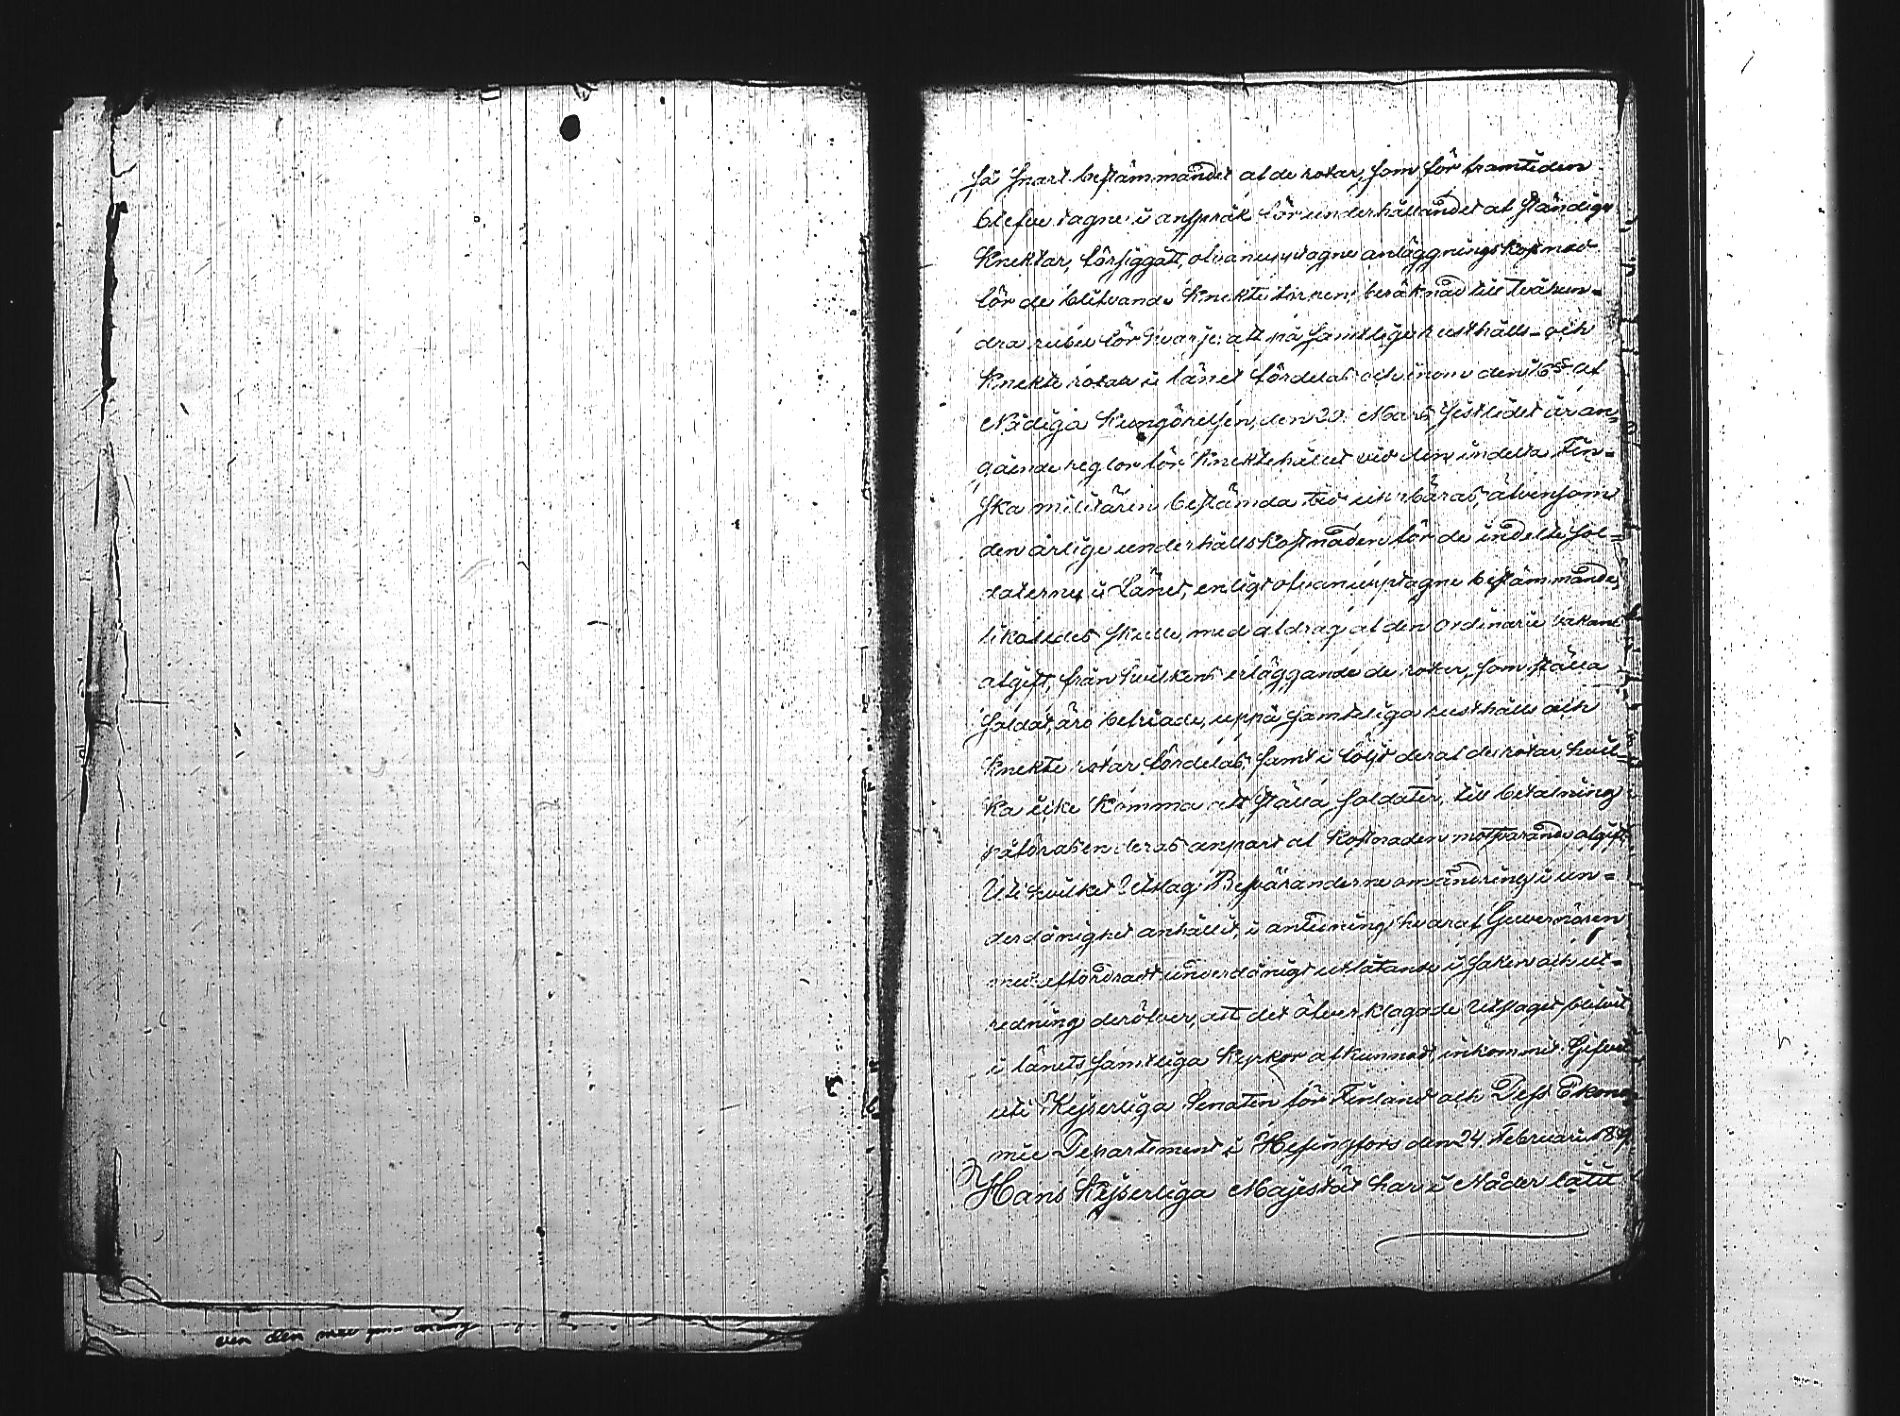 så snart bestämmandet af de rotar, som för framtiden
blefve tagne i anspråk för underhållandet af ständige
Knektar, försiggått, ofvanupptagne anläggningskostnad
för de blifvande Knektetorpen, beräknad till tvåhun=
dra rubel för hvarje, att på samtlige rusthålls- och
Knekte rotar i länet fördelas och inom den i 6 § af
Nådiga Kungörelsen den 20 Mars sistledet år an=
gående reglor för Knektehållet vid den indelta Fin=
ska militären bestämda tid utbäras, äfvensom
den årliga underhållskostnaden för de indelte sol=
daterne i Länet, enligt ofvanupptagne bestämmande,
likaledes skulle, med afdrag af den ordinarie vakans
afgift, från hvilkens erläggande de rotar, som ställa
soldat, äro befriade, uppå samtliga rusthålls och
Knekte rotar fördelas, samt i följd deraf de rotar, hvil=
ka icke Komma att ställa soldater, till betalning
påföras en deras anpart af Kostnaden motsvarande afgift
Uti hvilket Utslag Besväranderne omändring i un=
derdånighet anhållit, i anledning hvaraf Guvernören
med affordradt underdånigt utlåtande i saken och ut=
redning deröfver, att det öfverklagade Utslaget blifvit
i länets samtliga Kyrkor afkunnadt inkommit. Gifvet
uti Kejserliga Senaten för Finland och Dess Ekono
mie Departement i Helsingfors den 24 Februari 18
Hans Kejserliga Majestät har i Nåder låtit